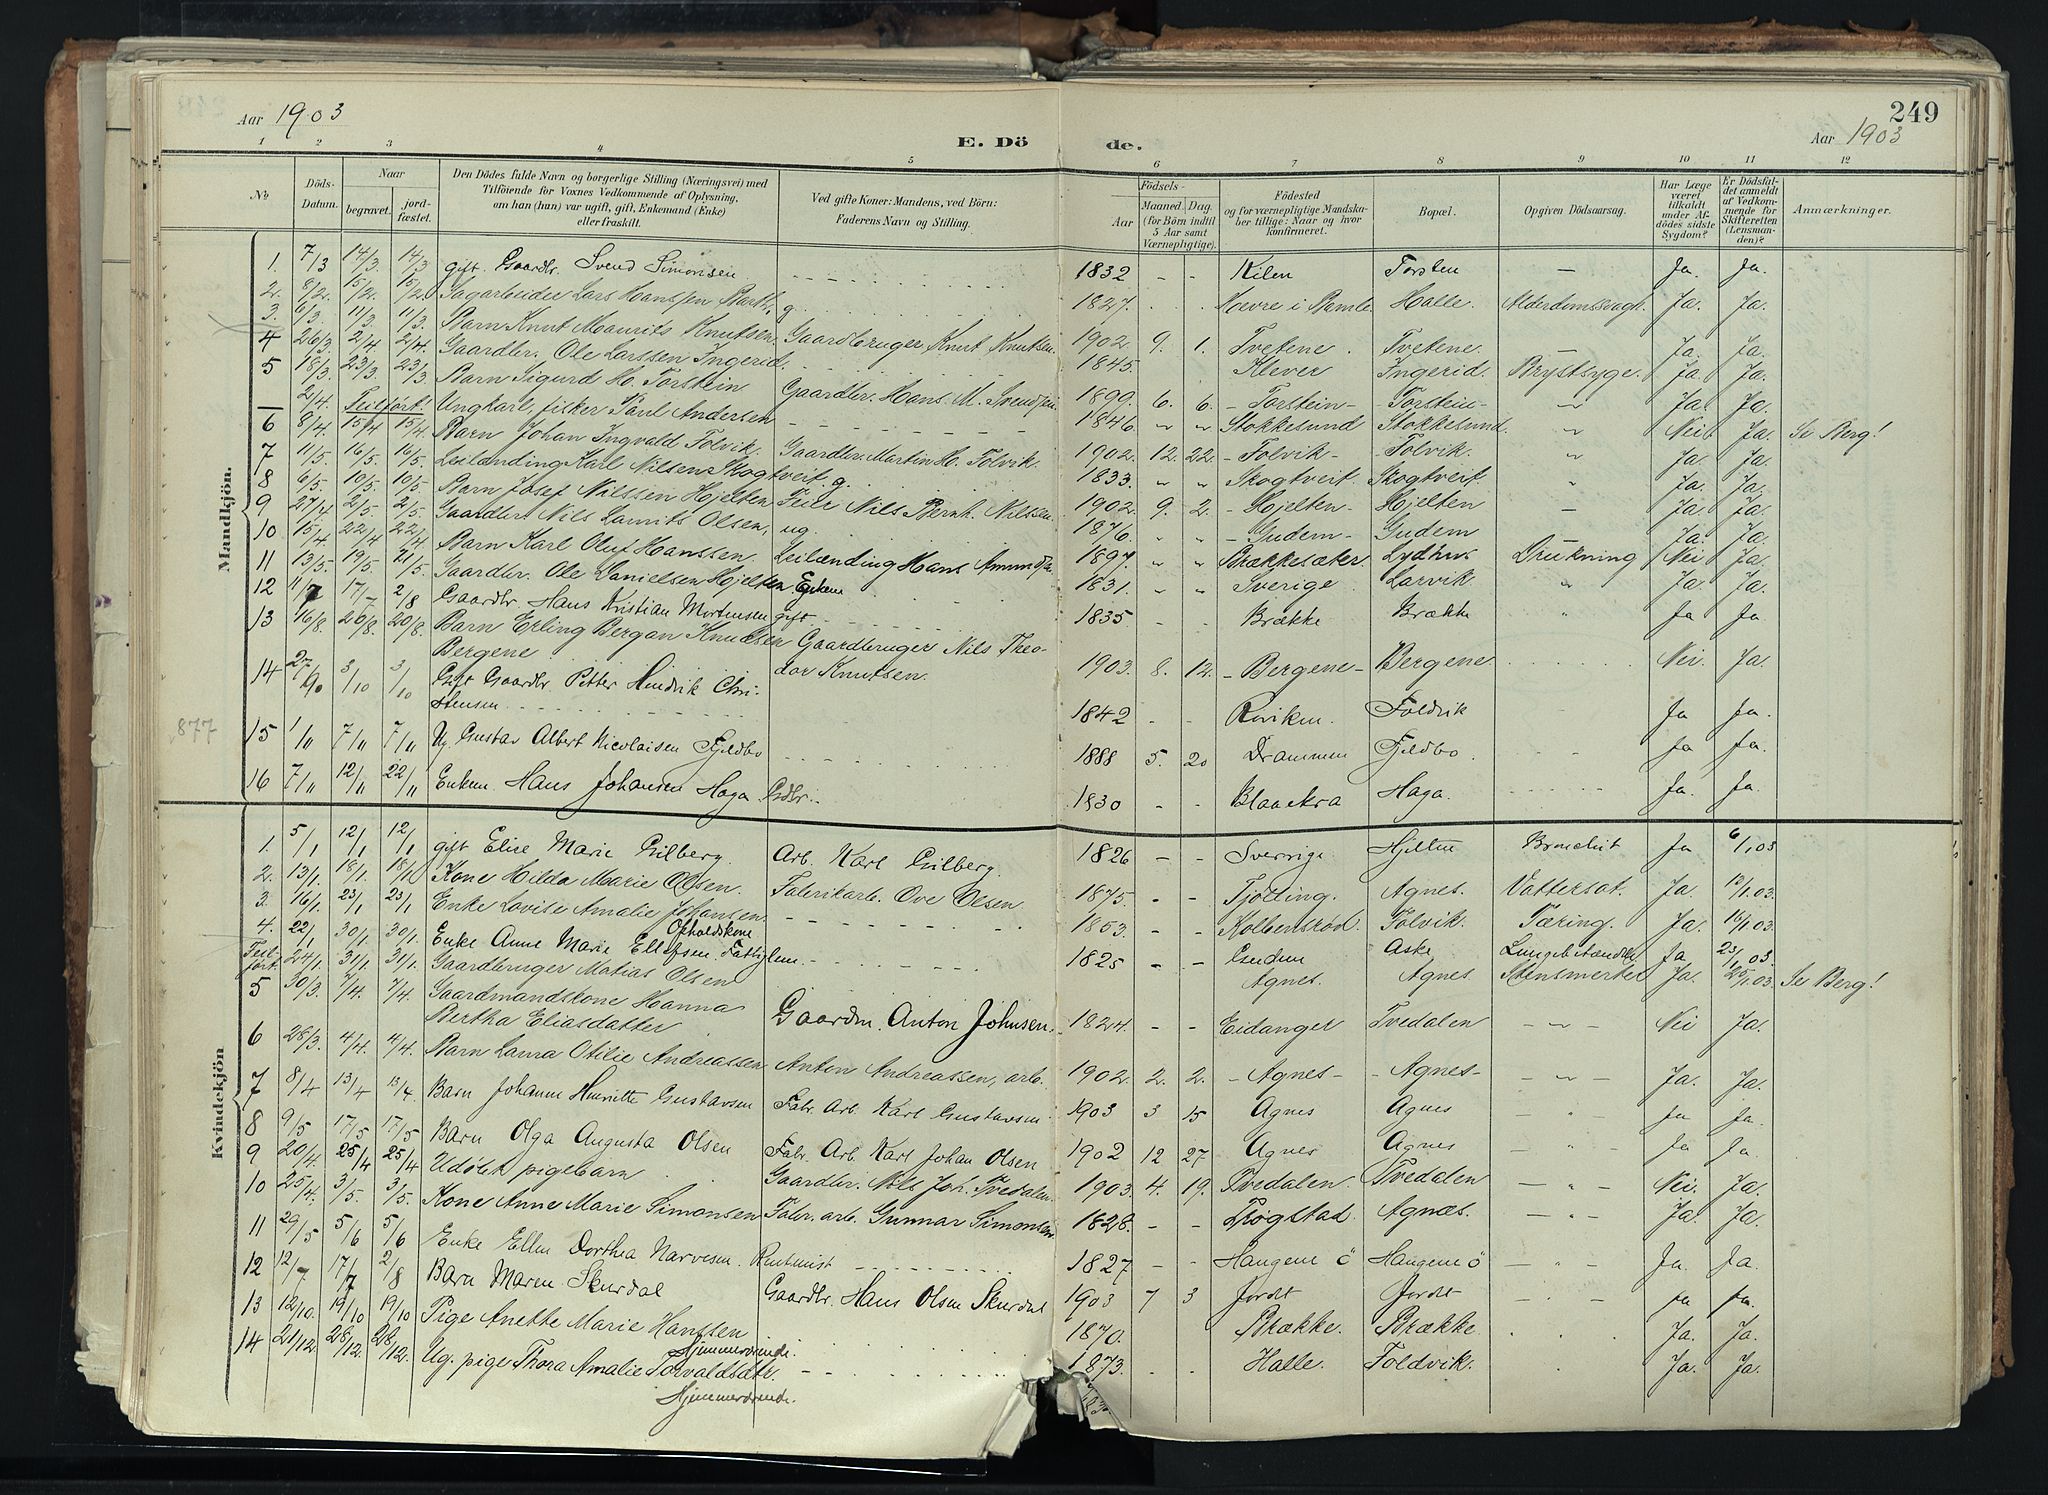 249
Aar 1903
E. Dö de.
Aar 1903
1 2 3 4 5 6 7 8 9 10 11 12
No
Döds-Datum.
Naar
begravet.
jordfæstet.
Den Dödes fulde Navn og borgerlige Stilling (Næringsvei) med
Tilföiende for Voxnes Vedkommende af Oplysning,
om han (hun) var ugift, gift, Enkemand (Enke)
eller fraskilt.
Ved gifte Koner: Mandens, ved Börn:
Faderens Navn og Stilling.
Födsels-
Aar
Maaned. Dag.
(for Börn indtil
5 Aar samt
Værnepligtige).
Födested
og for værnepligtige Mandska-
ber tillige: Naar og hvor
konfirmeret.
Bopæl.
Opgiven Dödsaarsag.
Har Læge
været
tilkaldt
under Af-
dödes sidste
Sygdom?
Er Dödsfal-
det anmeldt
af Vedkom-
mende for
Skifteretten
(Lensman-
den)?
Anmærkninger.
Mandkjön.
1. 7/3 14/3 14/3 gift. Gaardbr. Svend Simonsen 1832 - - Kilen Torsten - Ja. Ja.
2. 8/2 15/2 15/2 Sagarbeider Lars Hansen g. 1827 Halle. Alderdomssvagh. Ja. Ja.
3. 6/3 11/3 11/3 Barn Knut Maurits Knutsen Gaardbruger Knut Knutsen 1902 9. 1. Tvetene. Tvetene. - Ja. Ja.
4 26/3 2/4 2/4 Gaardbr. Ole Larssen Ingerid. 1845. Klever Ingerid. Brystsyge. Ja. Ja.
5 18/3 23/3 23/3 Barn Sigurd H. Torstein Gaardbr. Hans M. Svendsen 1899 6. 6. - Torstein - - Torstein - Ja. Ja.
2/4. Feilført. Ungkarl, fisker Paul Andersen 1846 Stokkesund Stokkesund. Nei Ja. Se Berg!
6 8/4 15/4 15/4 Barn Johan Ingvald Tolvik. Gaardbr. Martin H. Tolvik. 1902. 12. 22. - Tolvik - - Tolvik. Ja. Ja.
7 11/5 16/5 16/5 Leilænding Karl Nilsen Skogtveit. g. 1833. Skogtveit Skogtveit Ja. Ja.
8 6/5 10/5 10/5 Barn Josef Nilssen Hjelten Nils Bernh. Nilssen 1902. 9. 2. - Hjelten - - Hjelten - Ja. Ja.
9 27/4 2/5 2/5 Gaardbr. Nils Laurits Olsen, ug. 1876. - Gudem - Gudem Ja. Ja.
10 15/4 22/4 22/4 Barn Karl Oluf Hanssen. Leilænding Hans Amundsen 1897. Brækkesæter Drukning Nei Ja.
11 13/5 19/5 21/5 Gaardbr. Ole Danielsen Hjelten Enkem 1831. Sverige Larvik Ja. Ja.
12 11/7 17/7 2/8 Gaardbr. Hans Kristian Mortensen gift 1835 Brække Brække Ja Ja.
13 16/8. 20/8 20/8 Barn Erling Bergan Knutsen Gaardbruger Nils Theo-
Bergene dor Knutsen. 1903. 8. 12. - Bergene - Bergene. Nei. Ja.
14 27/9 3/10 3/10 Gift Gaardbr Petter Hendrik Chri-
stensen 1842 - - Roviken. Foldvik Ja Ja.
877
15 1/11 7/11 7/11 Ug. Gustav Albert Nicolaisen Fjeldbo 1888 5. 20 Drammen Fjeldbo. Ja Ja.
16 7/11 12/11 22/11 Enkem. Hans Johansen Haga. Gdbr. 1830 - - Blaaekra Haga. Ja. Ja.
Kvindekjön
1. 5/1 12/1 12/1 gift Elise Marie Gilberg. Arb. Karl Gilberg. 1826 - - Sverrige Hjelten Bronchit Ja 6/1 03
2. 13/1. 18/1. 18/1. Kone Hilda Marie Olsen. Fabrikarb. Ove Olsen 1875. - - Tjölling. Agnes. Vattersot. Ja. 13/1.03.
3. 16/1. 23/1 23/1 Enke Lovise Amalie Johansen 1853. - - Kolbensrød. Tolvik. Tæring. Ja. 16/1.03.
4. 22/1 30/1. 30/1. Enke Anne Marie Ellefsen. Opholdskone Fattiglem. 1825 - - Gudem Aske Ja 23/1.03.
Feil-
ført. 24/1. 31/1. 31/1. Gaardbruger Matias Olsen Agnes. Agnes Ja. 25/1.03. Se Berg!
5 30/3. 7/4. 7/4. Gaardmandskone Hanna
Bertha Eliasdatter Gaardm. Anton Johnsen. 1824. - - Eidanger Tvedalen Nei Ja.
6 28/3. 4/4. 4/4. Barn Laura Otilie Andreassen Anton Andreassen, arb. 1902. 2. 2. - Agnes - - Agnes - Ja. Ja.
7 8/4 13/4 13/4 Barn Johanne Henriette Gustavsen Fabr. Arb. Karl Gustavsen 1903 3 15 Agnes Agnes Ja Ja.
8 9/5 17/5 17/5 Barn Olga Augusta Olsen Fabr. Arb. Karl Johan Olsen 1902 12 27 Agnes Agnes Ja Ja.
9 20/4. 25/4 25/4 Udöbt pigebarn Gaardbr. Nils Joh. Tvedalen 1903. 4. 19. Tvedalen. Tvedalen Nei. Ja.
10 25/4. 3/5. 3/5. Kone Anne Marie Simonsen Fabr. arb. Gunnar Simonsen 1828. - - Trøgstad. Agnæs. Ja. Ja.
11 29/5 5/6 5/6 Enke Ellen Dorthea Narvesen. Rentenist 1827 - - Haugene ö Haugene ö Ja. Ja.
12 12/7 17/7 2/8 Barn Maren Skurdal Gaardbr. Hans Olsen Skurdal 1903 7 3 Jordet Jordet Ja Ja.
13 12/10. 19/10 19/10 Pige Anette Marie Hanssen
Hjemmeværende. 1870. Brække. Brække Ja. Ja.
14 21/12. 28/12. 28/12. Ug. pige Thora Amalie Torvaldsdtr. 1873. Halle. Foldvik. Ja. Ja.
Hjemmeværende.